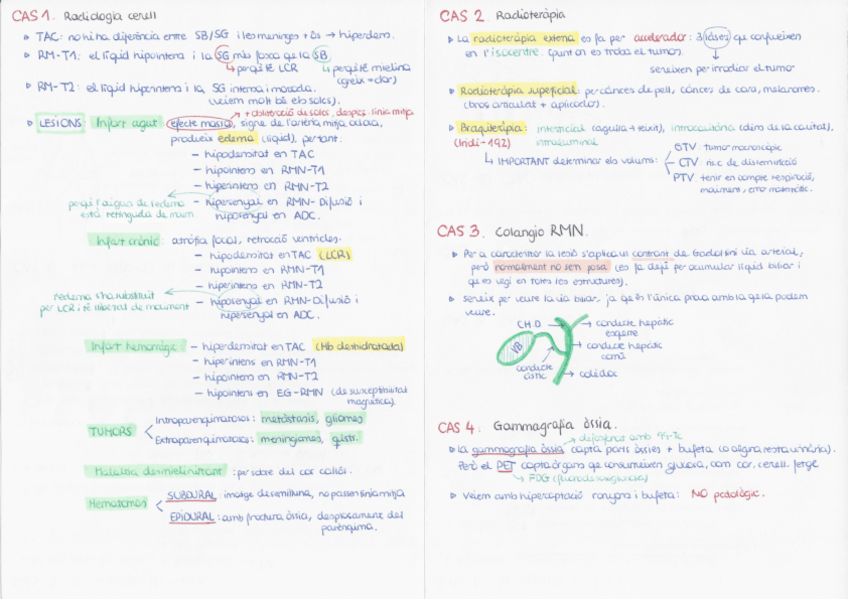 CAS 1. Radiologia cerell
TAC: no hi ha diferència entre SB/SG i les meninges + os → hiperdens.
RM-T1: el líquid hipointens i la SG més fosca que la SB
↳ perquè té LCR ↳ perquè té mielina
(greix = clar)
RM-T2: el líquid hiperintens i la SG intensa i marcada.
(veiem molt bé els solcs).
LESIONS: Infart agut: efecte massa, signe de l'artèria mitja,
+ obliteració de solcs, desplaç. línia mitja
produeix edema (líquid), per tant:
- hipodensitat en TAC
- hipointens en RMN-T1
- hiperintens en RMN-T2
perquè l'aigua de l'edema - hipersenyal en RMN-Difusió i
està retinguda de movim. hiposenyal en ADC.
Infart crònic: atròfia focal, retracció ventricles.
- hipodensitat en TAC (LCR)
- hipointens en RMN-T1
- hiperintens en RMN-T2
l'edema s'ha substituït - hiposenyal en RMN-Difusió i
per LCR i té llibertat de moviment hipersenyal en ADC.
Infart hemorràgic - hiperdensitat en TAC (Hb deshidratada)
- hiperintens en RMN-T1
- hipointens en RMN-T2
- hipointens en EG-RMN (de susceptibilitat
magnètica).
TUMORS
Intraparenquimatosos: metàstasis, gliomes
Extraparenquimatosos: meningiomes,
Malaltia desmielinitzant: per sobre del cos callós.
Hematomes
SUBDURAL: imatge de semilluna, no passen línia mitja
EPIDURAL: amb fractura òssia, desplaçament del
parènquima.
CAS 2 Radioteràpia
La radioteràpia externa es fa per accelerador: 3 làsers que conflueixen
en l'isocentre. (punt on es troba el tumor).
serveixen per irradiar el tumor
Radioteràpia superficial: per càncers de pell, càncers de cara, melanomes.
(braç articulat + aplicador).
Braquiteràpia: intersticial (agulla + teixit), intracavitària (dins de la cavitat),
(Iridi-192) intraluminal
↳ IMPORTANT determinar els volums:
GTV: tumor macroscòpic
CTV: risc de disseminació
PTV: tenir en compte respiració,
moviment, error
CAS 3. Colangio RMN.
Per a caracteritzar la lesió s'aplica un contrast de Gadolini via arterial,
però normalment no se'n posa (es fa dejú per acumular líquid biliar i
que es vegi en totes les estructures).
Serveix per veure la via biliar, ja que és l'única prova amb la que la podem
veure.
CHD
conducte hepàtic
esquerre
VB
conducte hepàtic
comú
conducte
cístic
colèdoc
CAS 4: Gammagrafia òssia.
→ difosfonat amb 99-Tc
La gammagrafia òssia capta parts òssies + bufeta (o alguna resta urinària).
Però el PET capta òrgans que consumeixen glucosa, com cor, cerell, fetge
↳ FDG (fluorodesoxiglucosa)
Veiem amb hipercaptació ronyons i bufeta: NO patològic.